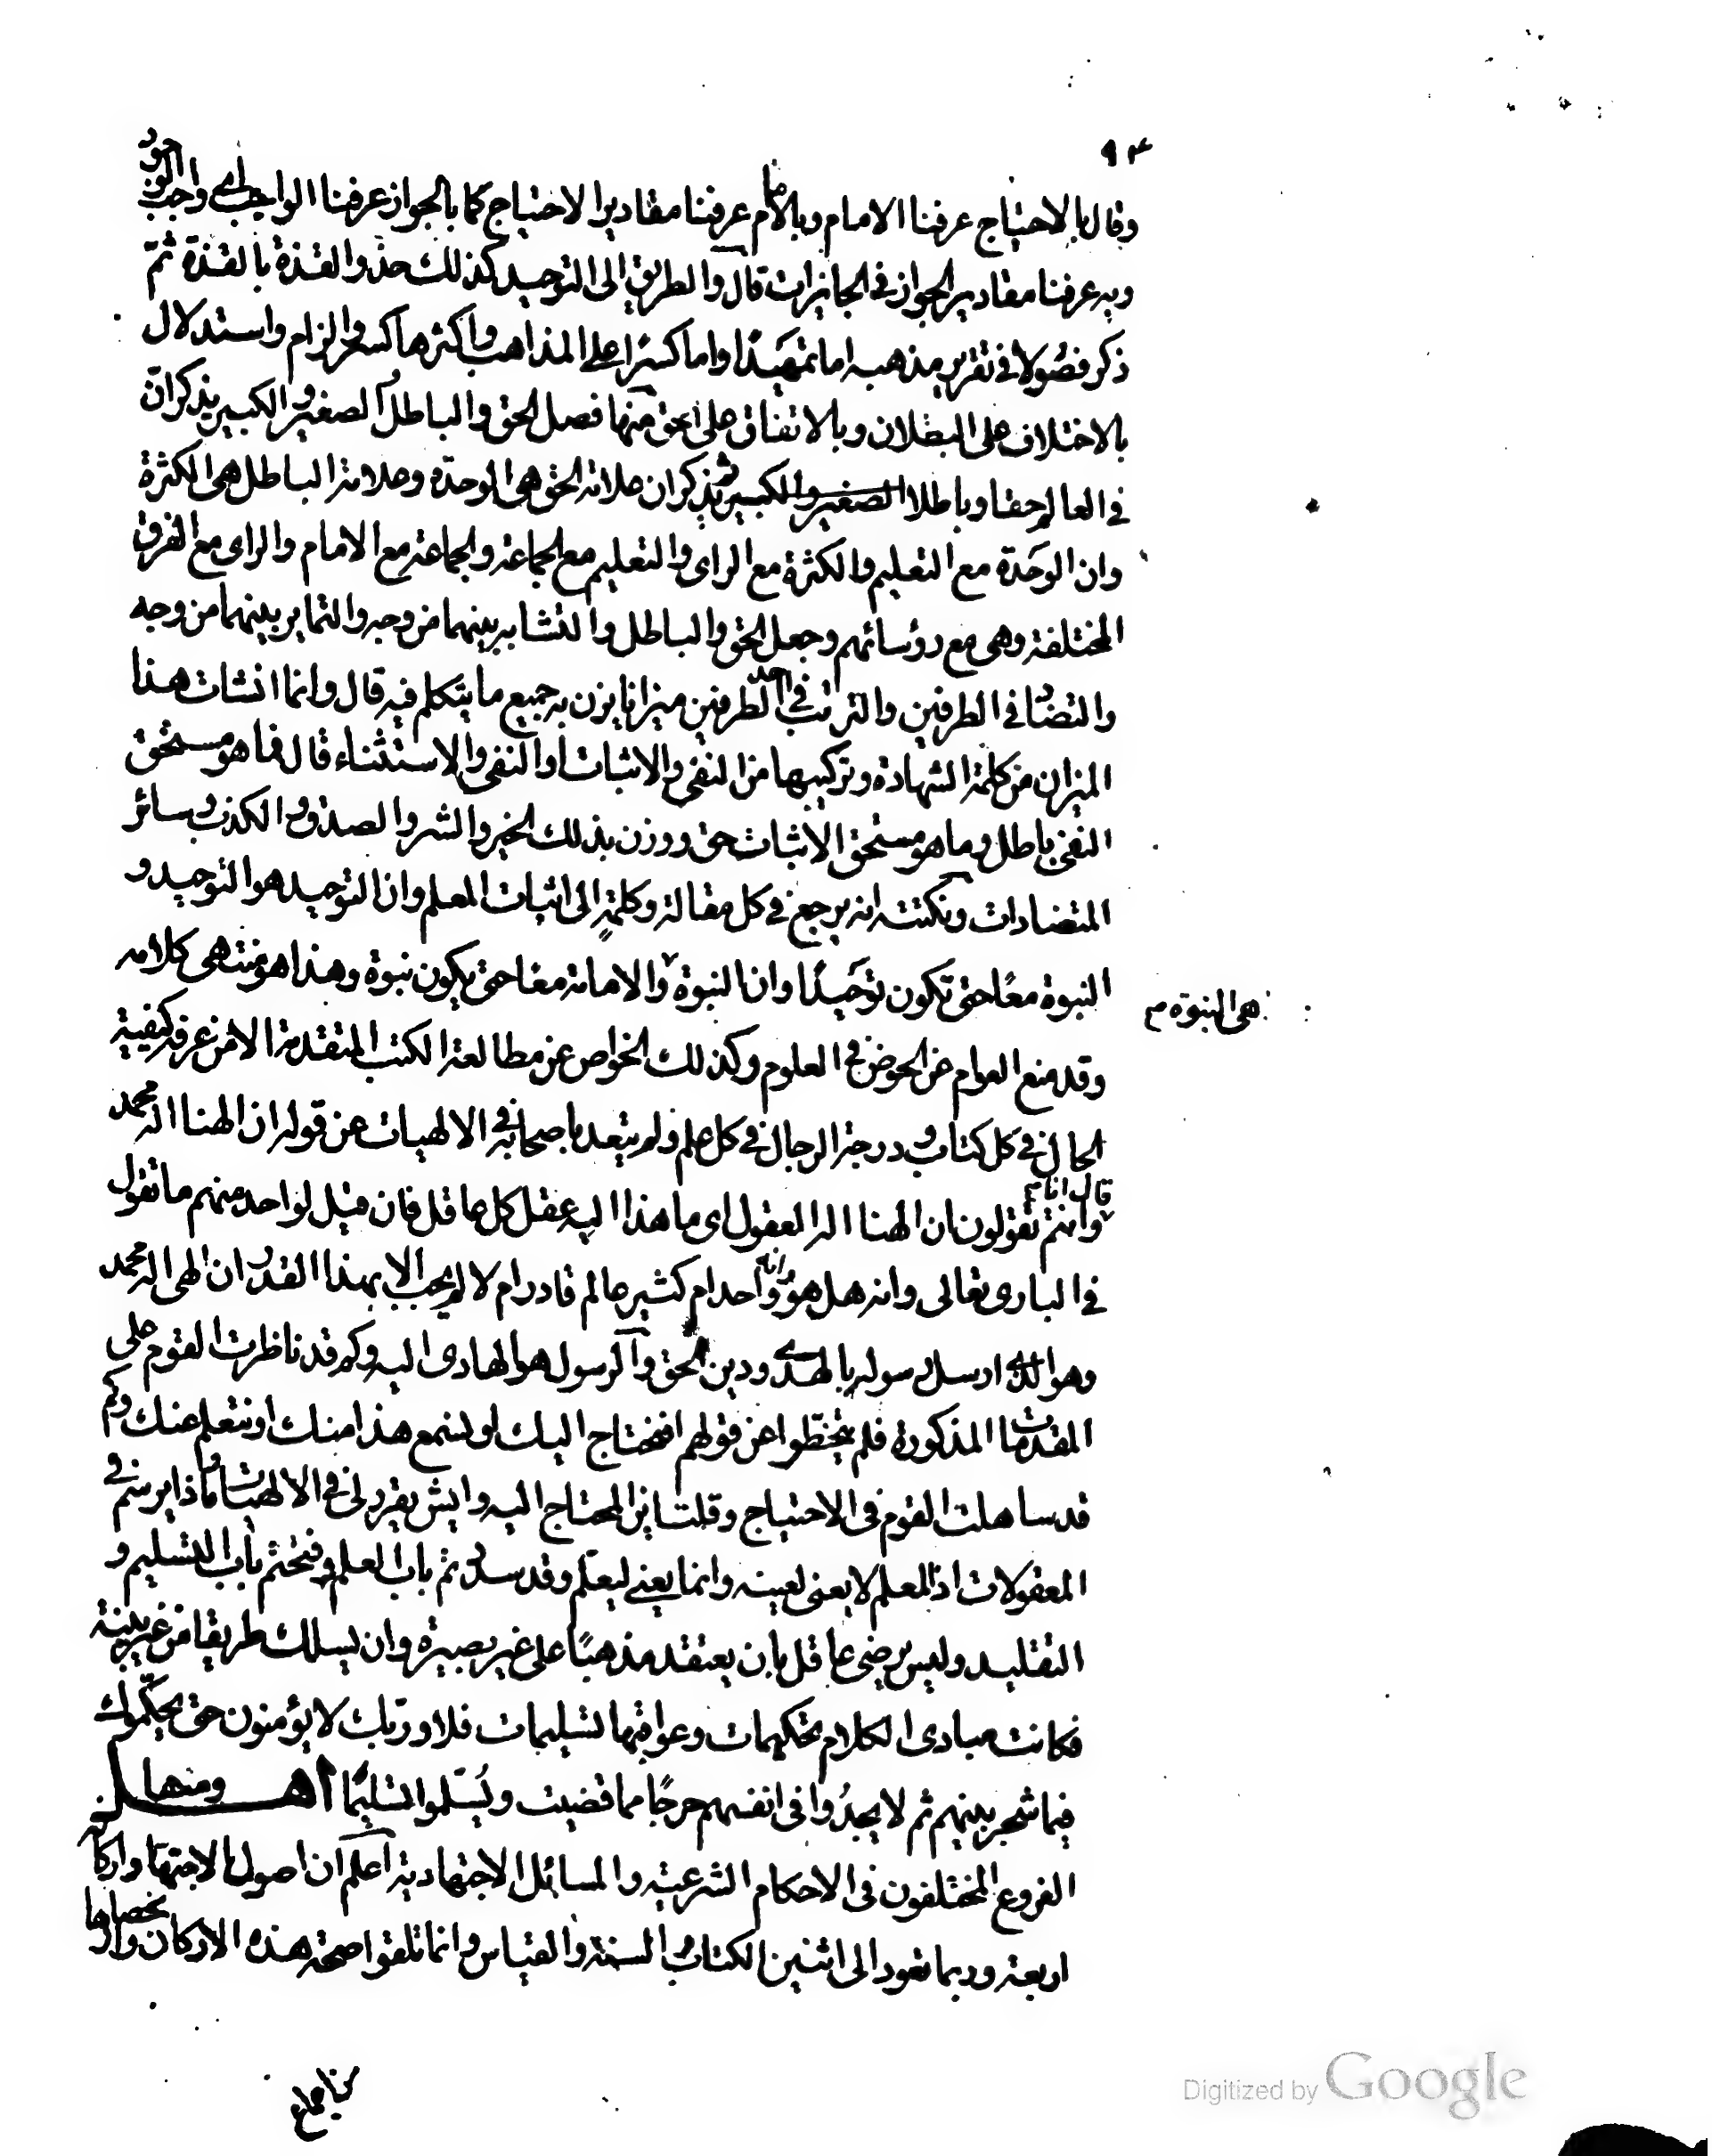 ٩٣
وقال بالاحتياج عرفنا الامام وبالامام عرفنا مقادير الاحتياج كما بالجواز عرفنا الواجب اى واجب الوجود
وبه عرفنا مقادير الجواز فى الجايزات قال والطريق الى التوحيد كذلك حذو القذة بالقذة ثمّ
ذكر فصُولا فى تقرير مذهبه اما تمهيدًا واما كسرًا على المذاهب واكثرها كسر والزام واستدلال
بالاختلاف على البطلان وبالاتفاق على الحق منها فصل الحق والباطل الصغير والكبير يذكر انّ
فى العالم حقا وباطلا الصغير والكبير ثم يذكر ان علامة الحق هى الوحدة وعلامة الباطل هى الكثرة
وان الوحَدة مع التعليم والكثرة مع الراى والتعليم مع الجماعة والجماعة مع الامام والراى مع الفرق
المختلفة وهى مع رؤسائهم وجعل الحق والباطل والتشابه بينهما من وجه والتمايز بينهما من وجه
والتضاد فى الطرفين والترتب فى احد الطرفين ميزانا يزن به جميع ما يتكلم فيه قال وانما انشات هذا
الميزان من كلمة الشهادة وتركيبها من النفى والاثبات او النفى والاستثناء قال فما هو مستحق
النفى باطل وما هو مستحق الاثبات حق ووزن بذلك الخير والشر والصدق والكذب وسائر
المتضادات ونكتته انه يرجع فى كل مقالة وكلمةٍ الى اثبات المعلم وان التوحيد هو التوحيد و
النبوة معًا حتى تكون توحَيدًا وان النبوة والامامة معا حتى يكون نبوة وهذا هو منتهى كلامه
هى النبوة م
وقد منع العوام عن الخوض فى العلوم وكذلك الخواص عن مطالعة الكتب المتقدمة الا من عرف كيفية
الحال فى كل كتاب ودرجة الرجال فى كل علم ولم يتعد باصحابه فى الالهيات عن قوله ان الهنا اله محمد
قال انا م
وانتم تقولون ان الهنا اله العقول اى ما هذا اليه عقل كل عاقل فان قيل لواحد منهم ما تقول
فى البارى تعالى وانه هل هو وانه احد ام كثير عالم قادر ام لا لم يجب الا بهذا القدر ان الهى اله محمد
وهو الذى ارسل رسوله بالهدى ودين الحق والرسول هو الهادى اليه وكم قد ناظرت القوم على
المقدمات المذكورة فلم يتخطّوا عن قولهم افنحتاج اليك او نسمع هذا منك او نتعلم عنك وكم
قد ساهلت القوم فى الاحتياج وقلت اين المحتاج اليه وايش يقرر لى فى الالهيات وماذا يرسم فى
المعقولات اذ المعلم لا يعنى لعينه وانما يعنى ليعلّم وقد سددتم باب العلم وفتحتم باب التسليم و
التقليد وليس يرضى عاقل بان يعتقد مذهبًا على غير بصيرة وان يسلك طريقا من غير بينة
فكانت مبادى الكلام تحكيمات وعواقبها تسليمات فلا وربك لا يؤمنون حتى يحكّموك
فيما شجر بينهم ثم لا يجدُوا فى انفسهم حرجًا مما قضيت ويُسَلّموا تسليمًا ومنها اهل
الفروع المختلفون فى الاحكام الشرعية والمسائل الاجتهادية اعلم ان اصول الاجتهاد واركانه
اربعة وربما تعود الى اثنين الكتاب والسنة والقياس وانما تلقوا صحة هذه الاركان وانحصارها